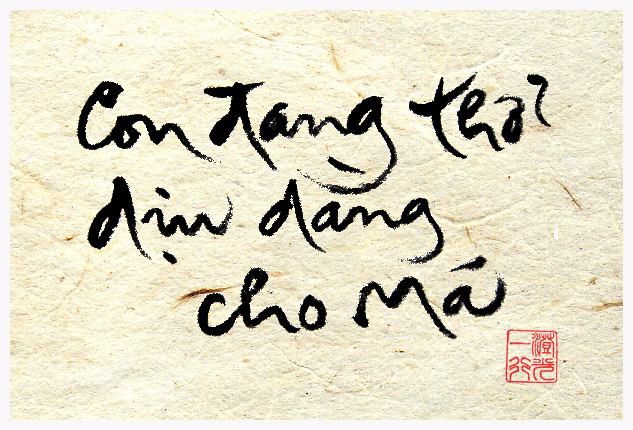 Con đang thở
dịu dàng
cho Má
澄光
一行